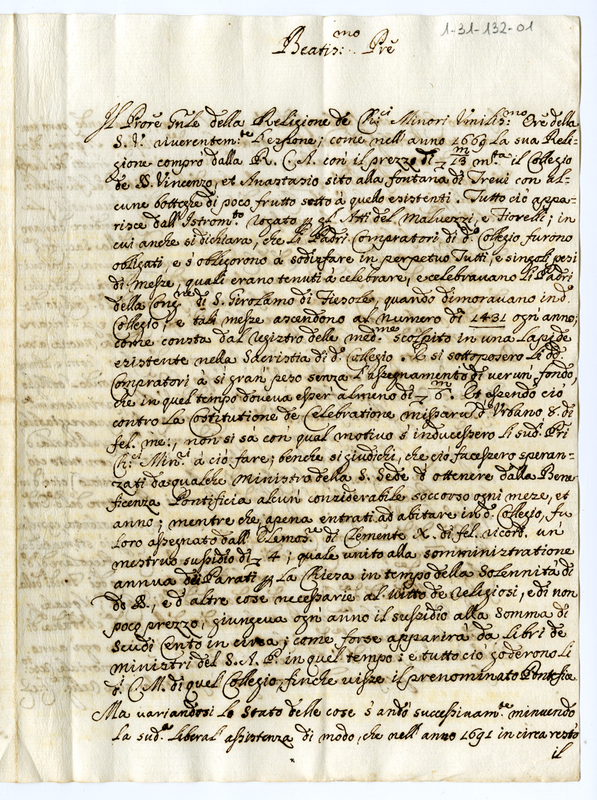 1-31-132-01
Beatis:mo Prē
Il Prore Gnle della Religione dè Ch:ci Minori Umilis:mo Ore della
S. V. riverentem:te espone; come nell'anno 1669 la sua Reli-
gione comprò dalla R. C. A. con il prezzo di 13 m ta il Collegio
de SS. Vincenzo, et Anastasio sito alla fontana di Trevi con al-
cune botteghe di poco frutto sotto à quello esistenti. Tutto ciò appa-
risce dall'Istrom:to rogato gl'Atti del Malvezzi, e Fiorelli; in
cui anche si dichiara, che li Padri Compratori di d:o Collegio furono
obligati e s'obligorono a sodisfare in perpetuo tutti, e singoli pesi
di Messe, quali erano tenuti à celebrare, e celebravano li Padri
della Cong:ne di S. Girolamo di Fiesole, quando dimoravano in d:o
Collegio; e tali messe ascendono al numero di 1431 ogni anno;
come consta dal registro delle med:me scolpito in una lapide
esistente nella Sacristia di d:o Collegio. E si sottoposero li dd:
Compratori à si gran peso senza l'assegnamento di verun fondo,
che in quel tempo doveva esser almeno di 6 m. Et essendo ciò
contro la Costitutione de Celebratione missarũ d'Urbano 8. di
fel. me:, non si sa con qual motivo s'inducessero li sud:i Pri
Ch:ci Min:ri à ciò fare; benche si giudichi, che ciò facessero speran-
zati da qualche Ministro della S. Sede d'ottenere dalla Bene-
ficenza Pontificia alcun considerabile soccorso ogni mese, et
anno; mentre che apena entrati ad abitare in d:o Collegio, fu
loro assegnato dall'Elemos:re di Clemente X. di fel. ricord. un
mestruo sussidio di 4; quale unito alla somministratione
annua dei Parati la Chiesa in tempo della Solennità di
dd SS., e d'altre cose necessarie al vitto de Religiosi, e di non
poco prezzo, giungeva ogn'anno il sussidio alla Somma di
Scudi Cento in circa; come forse apparirà da libri de
ministri del S. A. P. in quel tempo: e tutto ciò goderono li
d:i C. M. di quel Collegio, finche visse il prenominato Pontefice
Ma variandosi lo stato delle cose s'andò successivam:te minuendo
la sud:a liberal assistenza di modo, che nell'anno 1691 in circa restò
il